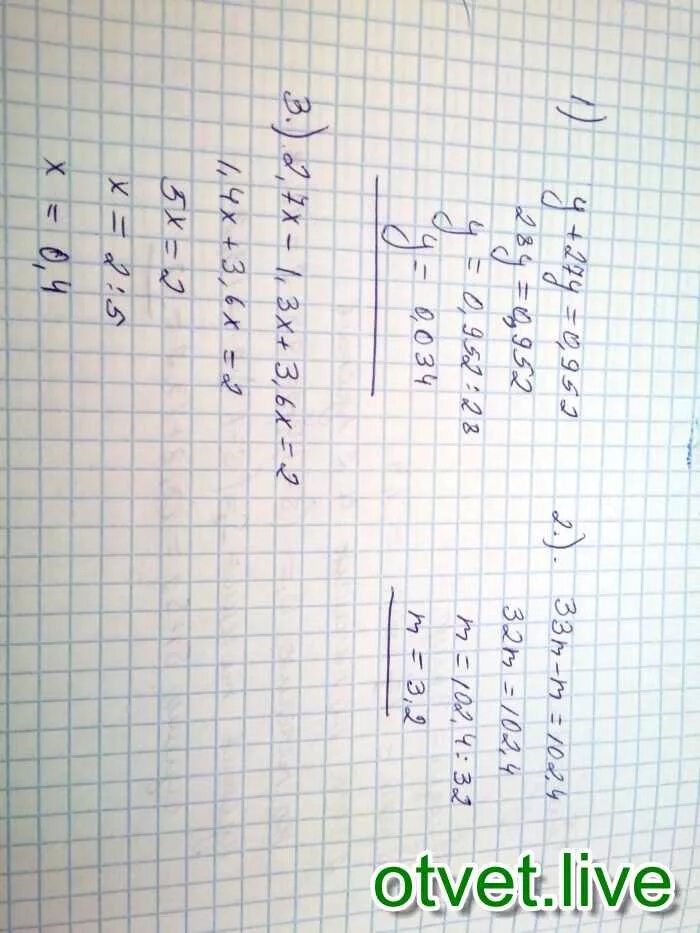 1) y + 27y = 0,952
28y = 0,952
y = 0,952 : 28
y = 0,034
2.). 33m - m = 102,4
32m = 102,4
m = 102,4 : 32
m = 3,2
3.) 2,7x - 1,3x + 3,6x = 2
1,4x + 3,6x = 2
5x = 2
x = 2 : 5
x = 0,4
otvet.live